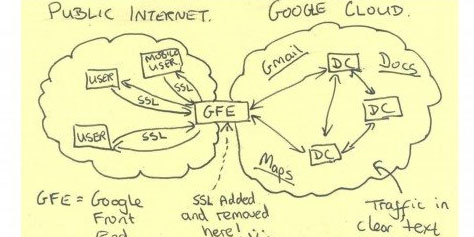 PUBLIC INTERNET.
GOOGLE CLOUD.
MOBILE
USER
USER
SSL
SSL
USER
SSL
GFE
Gmail
DC
Docs
DC
DC
Maps
GFE = Google
Front
End
SSL Added
and removed
here! :-)
Traffic in
clear text